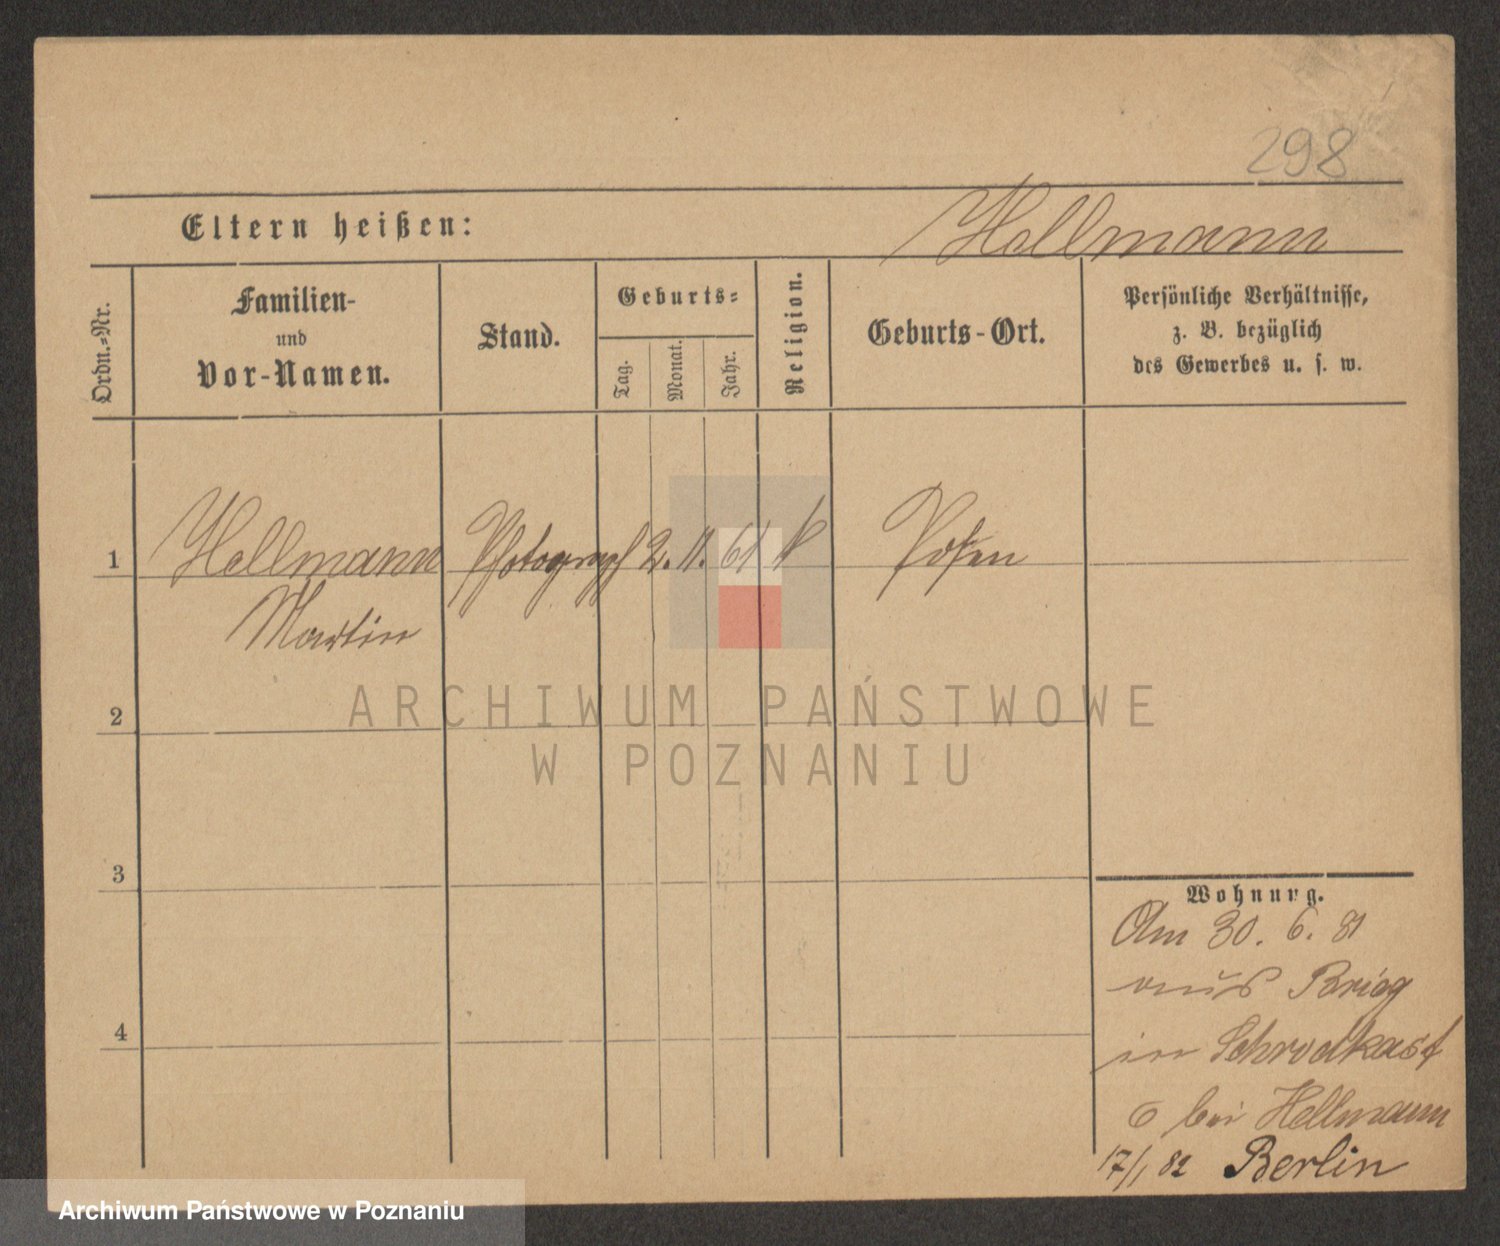 298
Eltern heißen:
Hellmann
Ordn.-Nr.
Familien-
und
Vor-Namen.
Stand.
Geburts-
Tag.
Monat.
Jahr.
Religion.
Geburts-Ort.
Persönliche Verhältnisse,
z. B. bezüglich
des Gewerbes u. s. w.
1 Hellmann Photograph 2. 11. 61 k Posen
Martin
ARCHIWUM PAŃSTWOWE
W POZNANIU
2
3
4
Wohnung.
Am 30. 6. 81
aus Brieg
in
6 bei Hellmann
17/1 82 Berlin
Archiwum Państwowe w Poznaniu